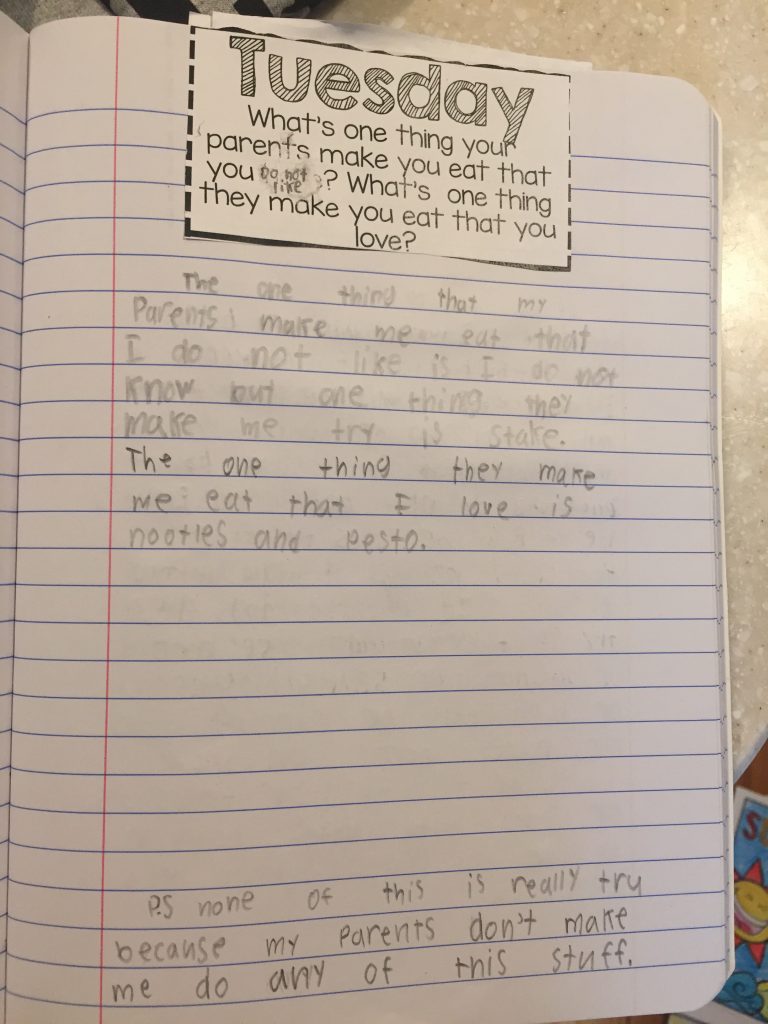 Tuesday
What's one thing your
parents make you eat that
you Do not like? What's one thing
they make you eat that you
love?
The one thing that my
Parents make me eat that
I do not like is I do not
know but one thing they
make me try is stake.
The one thing they make
me eat that I love is
nootles and pesto.
P.S none of this is really try
because my parents don't make
me do any of this stuff.